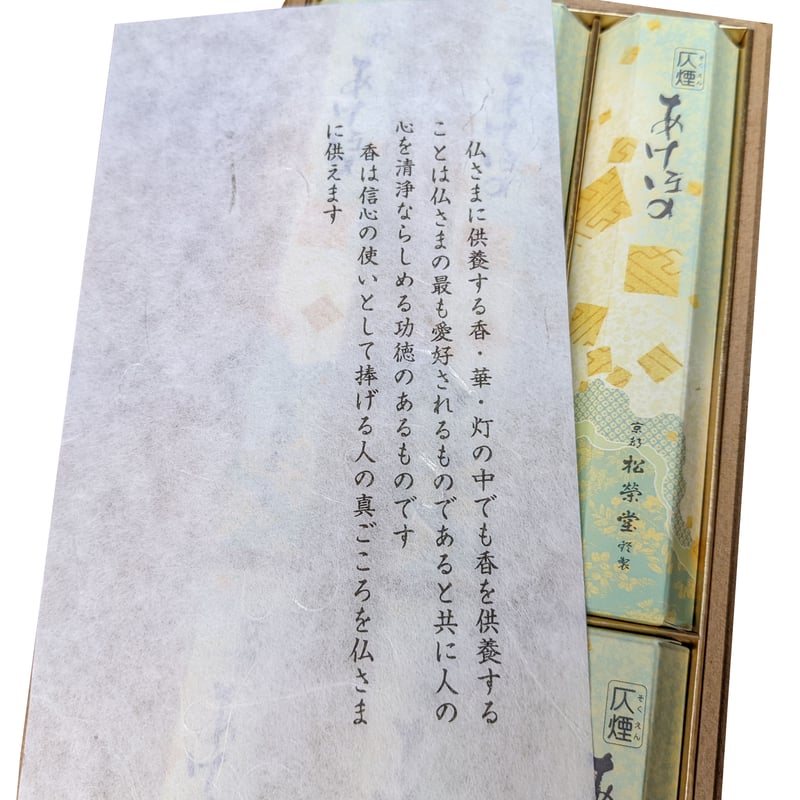 仏さまに供養する香・華・灯の中でも香を供養する
ことは仏さまの最も愛好されるものであると共に人の
心を清浄ならしめる功徳のあるものです
香は信心の使いとして捧げる人の真ごころを仏さま
に供えます
仄煙
そくえん
あけぼの
京都
松榮堂
謹製
仄煙
そくえん
あ